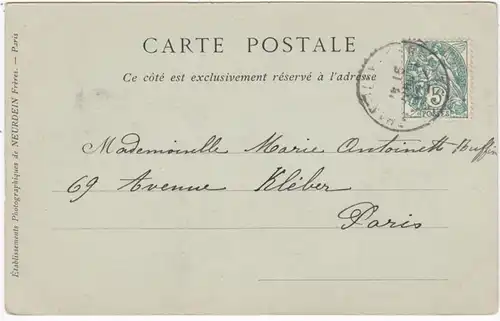 CARTE POSTALE
Ce côté est exclusivement réservé à l'adresse
5
Mademoiselle Marie Antoinette Buffin
69 Avenue Kléber
Paris
Établissements Photographiques de NEURDEIN Frères. — Paris